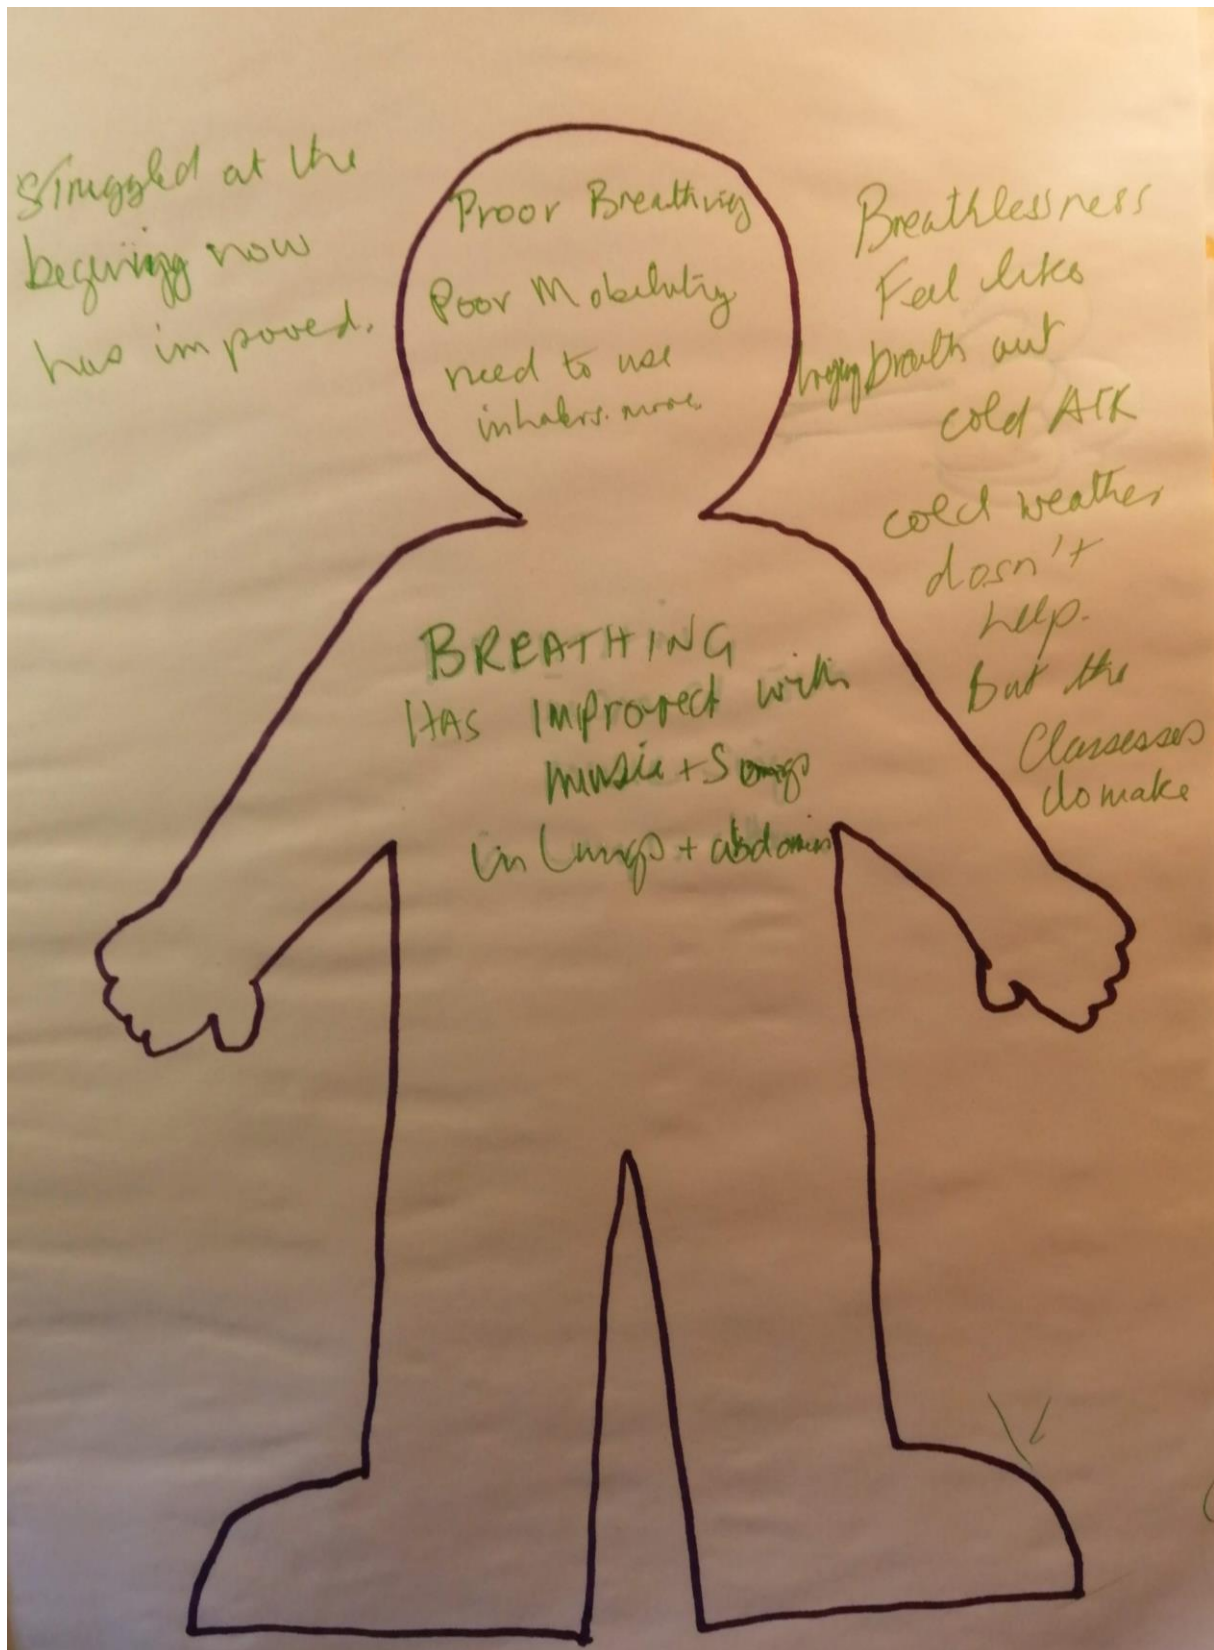 Struggled at the
begining now
has impoved.
Proor Breathing
Poor Mobelutiy
need to use
inhalers. more
Breathlessness
Feel like
breath out
cold AIR
cold weather
dosn't
help.
But the
Classesses
do make
BREATHING
HAS Improved with
music + Songs
in Lungs + abdomin